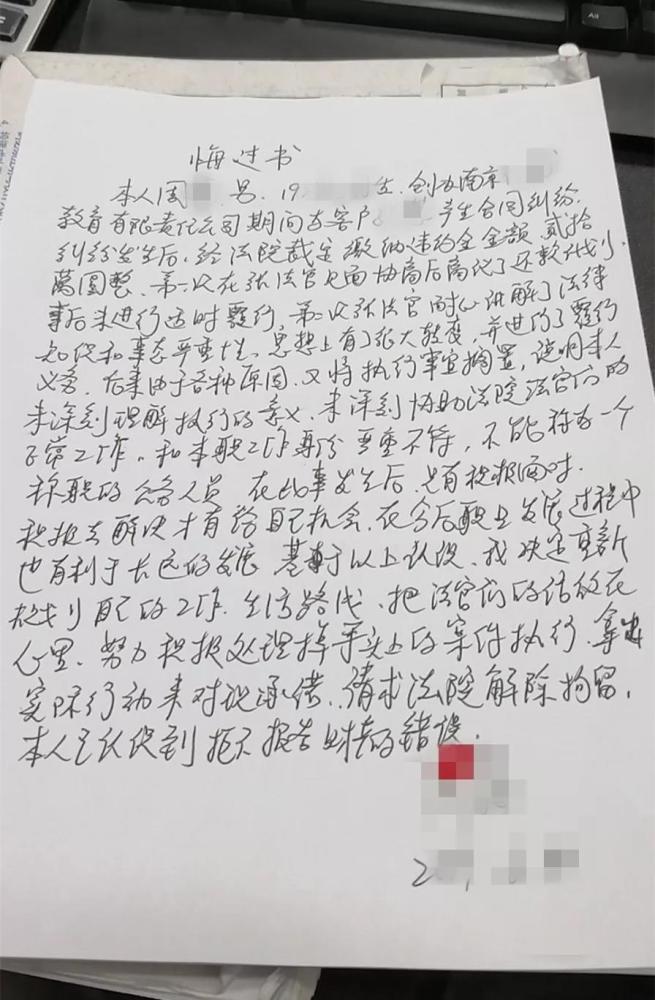 悔过书
本人周 男, 19 生, 创办南京
教育有限责任公司期间与客户 产生合同纠纷,
纠纷发生后, 经法院裁定缴纳违约金金额贰拾
萬圆整、第一次在张法官见面协商后商化了还款计划,
事后未进行适时履行, 第二次张法官耐心讲解了法律
知识和事态严重性、思想上有了很大转变, 并进行了履行
义务, 后来由于各种原因, 又将执行事宜搁置, 说明本人
未深刻理解执行的意义, 未深刻协助法院法官们的
正常工作, 和本职工作身份严重不符, 不能称为一个
称职的公务人员, 在此事发生后, 只有积极面对,
积极去解决才有给自己机会, 在今后职业发展过程中
也有利于长远的发展 基于以上认识, 我决定重新
规划自己的工作、生活路线、把法官们的话放在
心里、努力积极处理掉手头上的案件执行、拿出
实际行动来对说承偌、请求法院解除拘留,
本人已认识到拒不报告财产的错误.
20